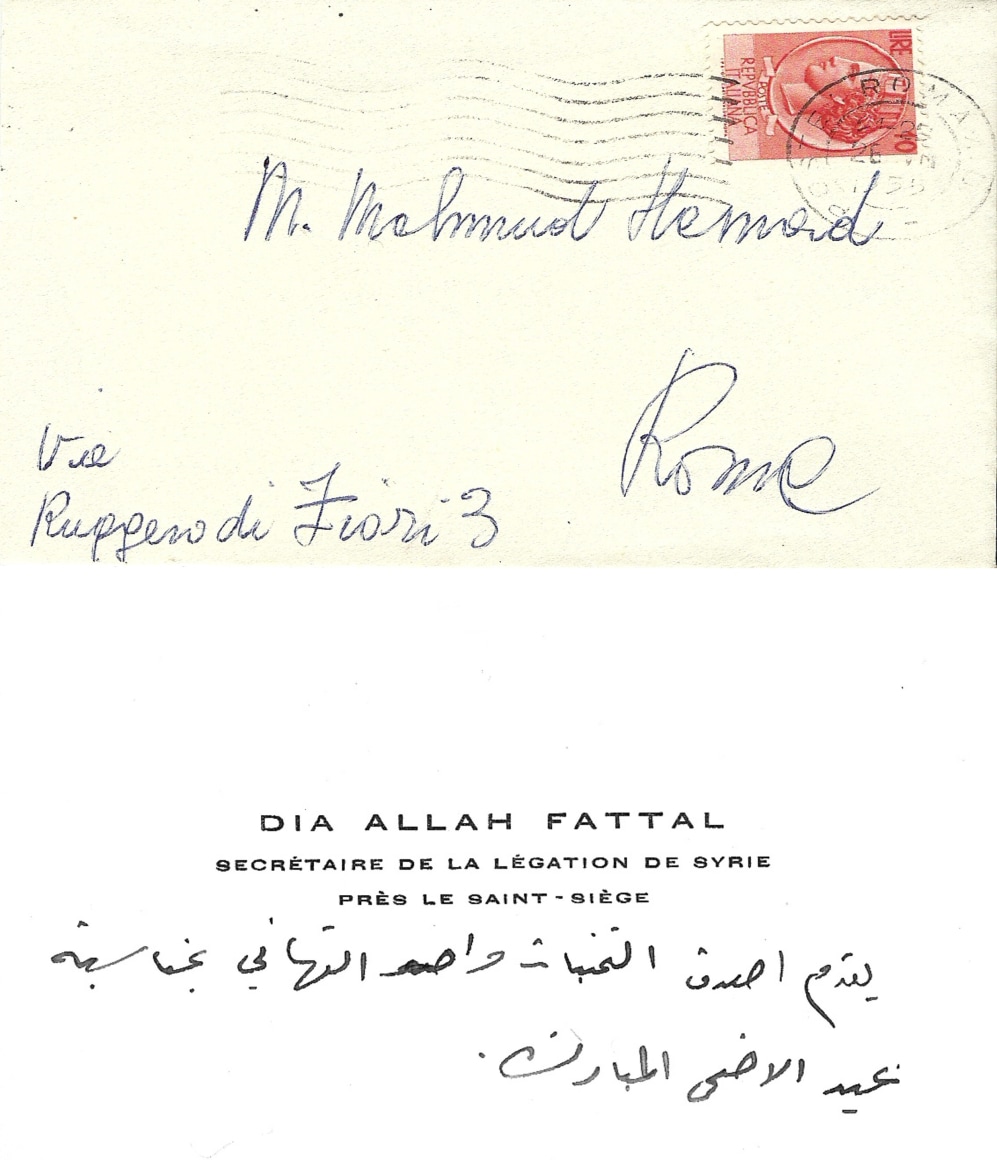 LIRE
POSTE
REPVBBLICA
ITALIANA
ROMA
M. Mahmud Hamad
Rome
Via
Ruggero di Fiori 3
DIA ALLAH FATTAL
SECRÉTAIRE DE LA LÉGATION DE SYRIE
PRÈS LE SAINT-SIÈGE
يقدم اصدق التمنيات و التهاني بمناسبة
عيد الاضحى المبارك.